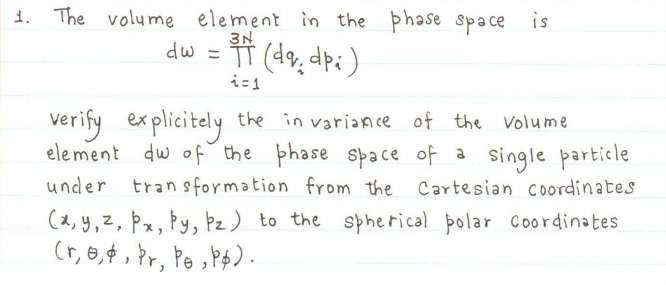 1. The volume element in the phase space is
dw = ∏_{i=1}^{3N} (dq_i dp_i)
verify explicitely the invariance of the volume
element dw of the phase space of a single particle
under transformation from the Cartesian coordinates
(x, y, z, p_x, p_y, p_z) to the spherical polar coordinates
(r, θ, ϕ, p_r, p_θ, p_ϕ).